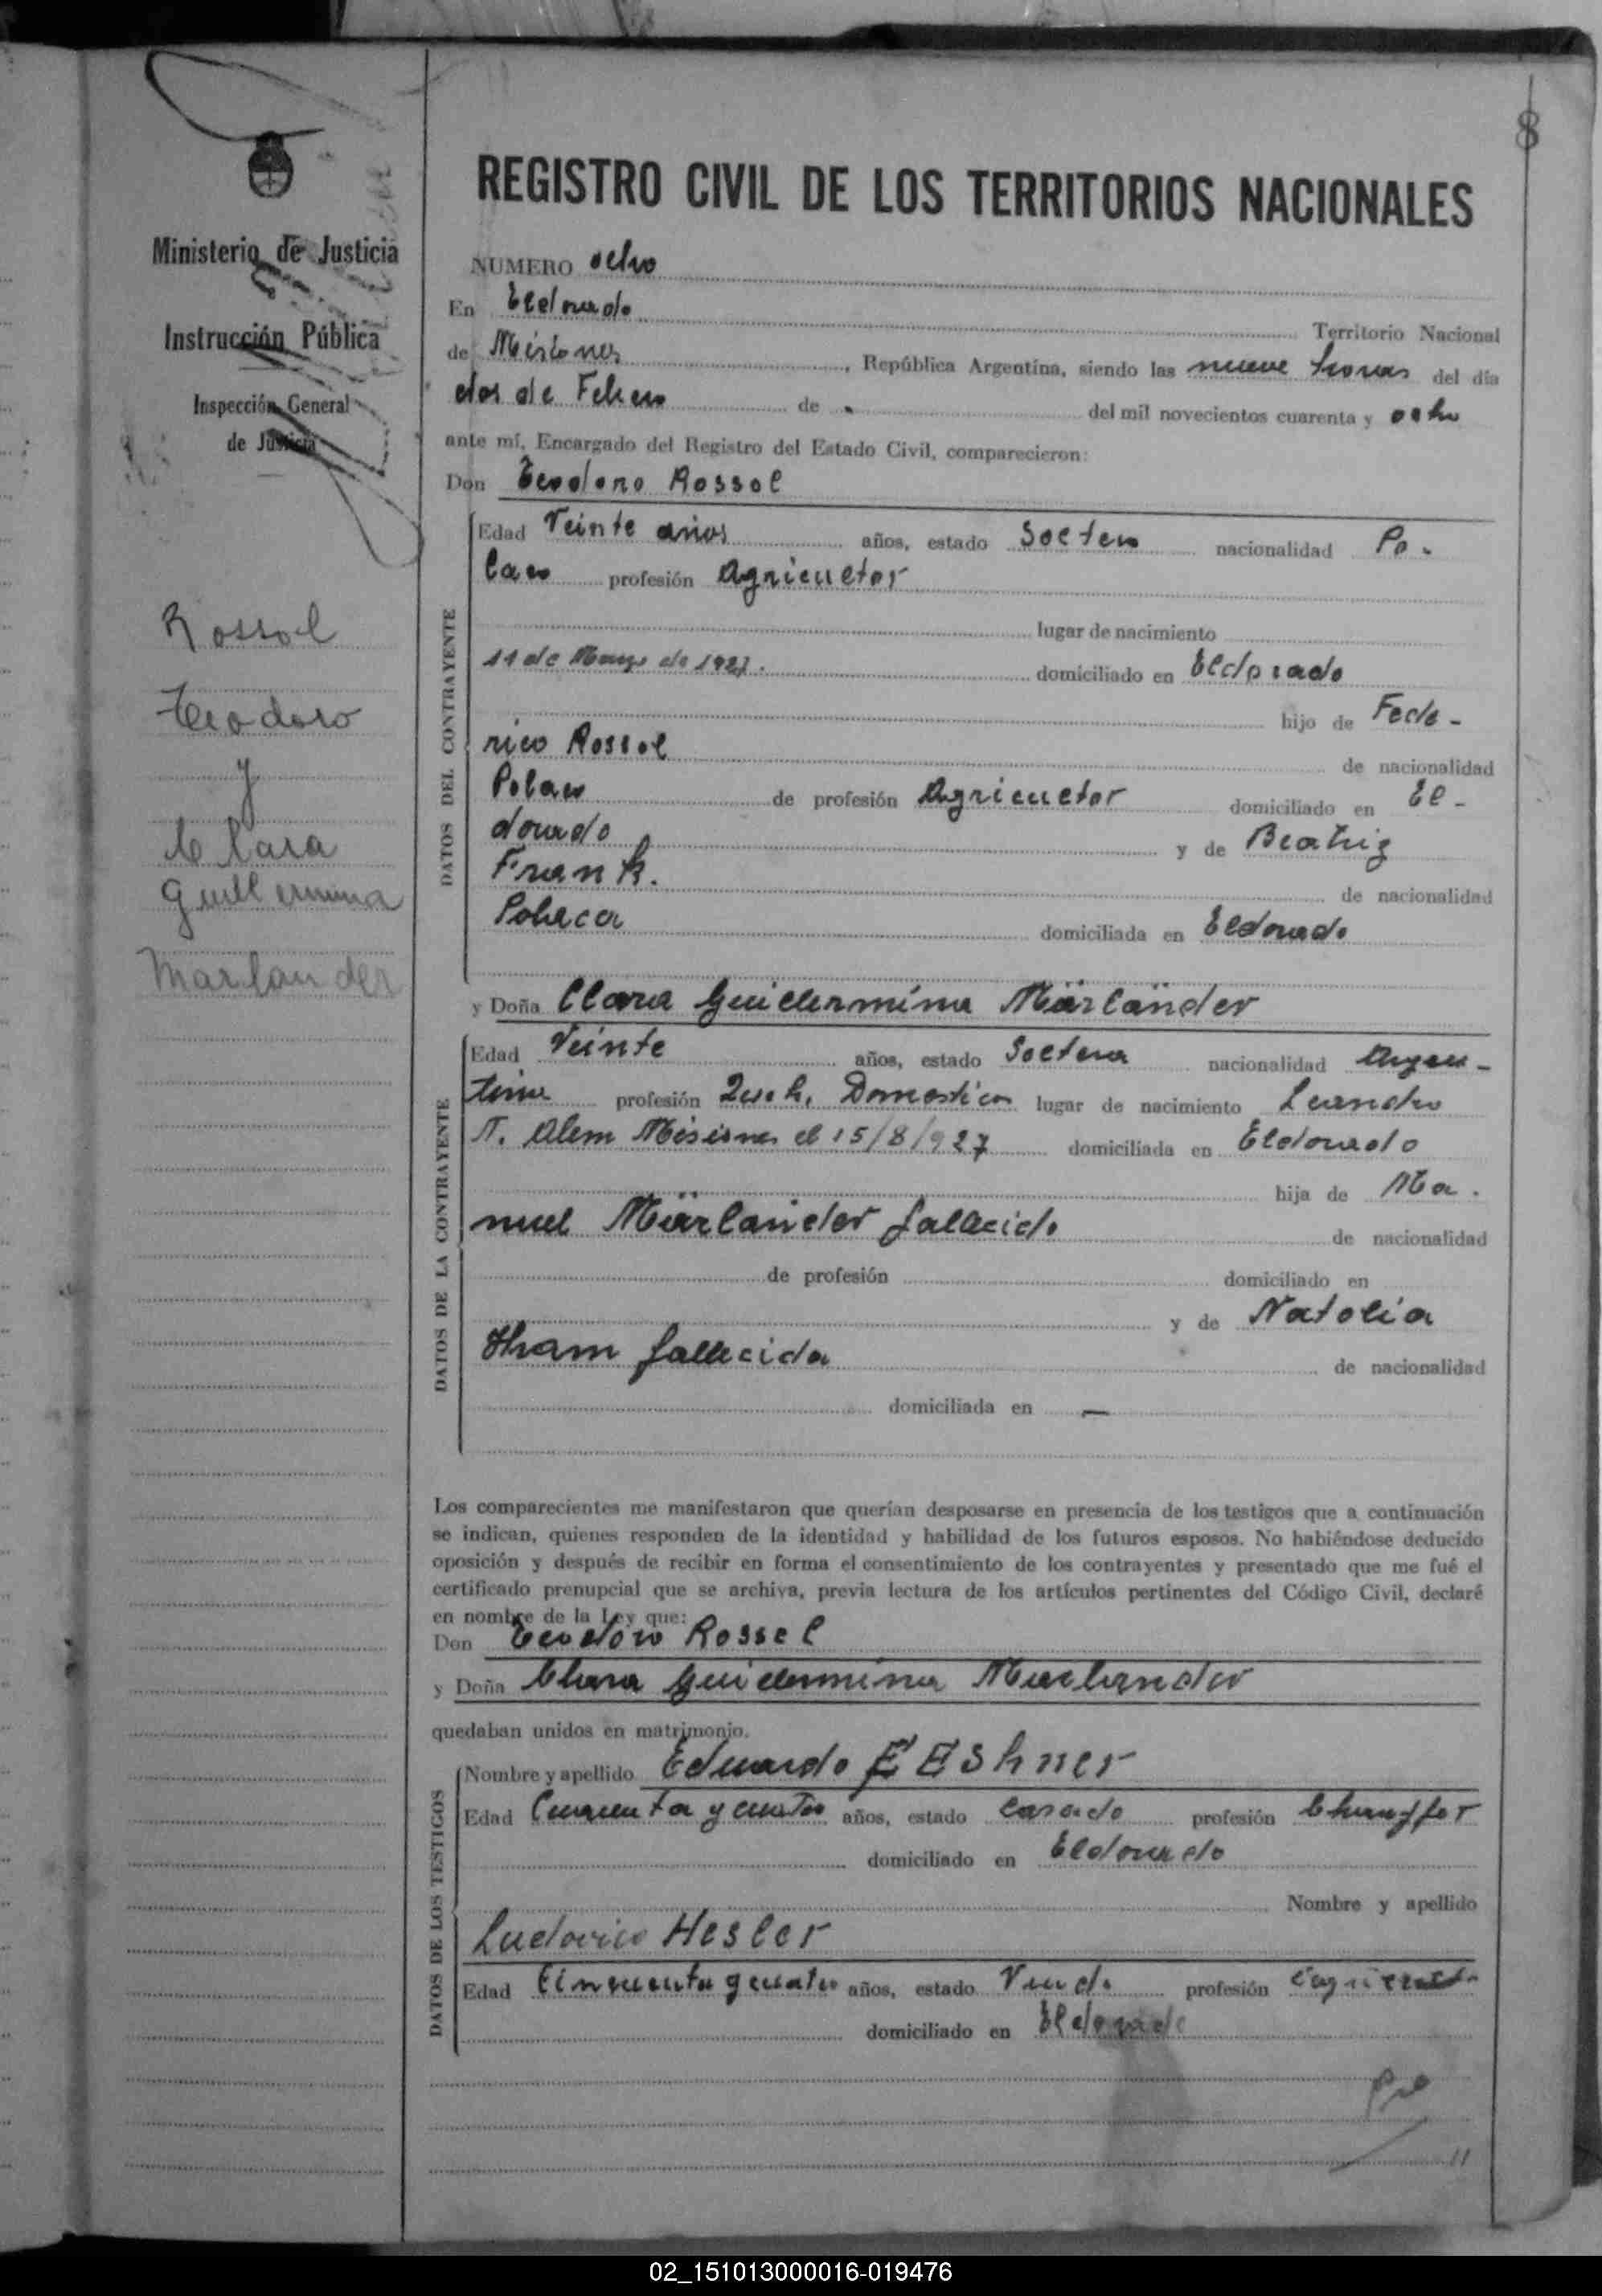 8
REGISTRO CIVIL DE LOS TERRITORIOS NACIONALES
Ministerio de Justicia
Instrucción Pública
Inspección General
de Justicia
Rossol
Teodoro
y
Clara
Guillermina
Marlander
NUMERO ocho
En Eldorado Territorio Nacional
de Misiones, República Argentina, siendo las nueve horas del día
dos de Febrero de del mil novecientos cuarenta y ocho
ante mí, Encargado del Registro del Estado Civil, comparecieron:
Don Teodoro Rossol
DATOS DEL CONTRAYENTE
Edad Veinte años años, estado Soltero nacionalidad Po-
laco profesión Agricultor
lugar de nacimiento
11 de Marzo de 1927. domiciliado en Eldorado
hijo de Fede-
rico Rossol de nacionalidad
Polaco de profesión Agricultor domiciliado en El-
dorado y de Beatriz
Frank. de nacionalidad
Polaca domiciliada en Eldorado
y Doña Clara Guillermina Märländer
DATOS DE LA CONTRAYENTE
Edad Veinte años, estado Soltera nacionalidad Argen-
tina profesión Domesticos lugar de nacimiento Leandro
N. Alem Misiones el 15/8/927 domiciliada en Eldorado
hija de Ma.
nuel Märlander fallecido de nacionalidad
de profesión domiciliado en
y de Natolia
Tham fallecida de nacionalidad
domiciliada en —
Los comparecientes me manifestaron que querían desposarse en presencia de los testigos que a continuación
se indican, quienes responden de la identidad y habilidad de los futuros esposos. No habiéndose deducido
oposición y después de recibir en forma el consentimiento de los contrayentes y presentado que me fué el
certificado prenupcial que se archiva, previa lectura de los artículos pertinentes del Código Civil, declaré
en nombre de la Ley que:
Don Teodoro Rossol
y Doña Clara Guillermina Marlander
quedaban unidos en matrimonio.
DATOS DE LOS TESTIGOS
Nombre y apellido Eduardo Eshner
Edad Cincuenta y cuatro años, estado Casado profesión Chauffer
domiciliado en Eldorado
Nombre y apellido
Ludovico Hesler
Edad Cincuenta y cuatro años, estado Viudo profesión
domiciliado en Eldorado
02_151013000016-019476